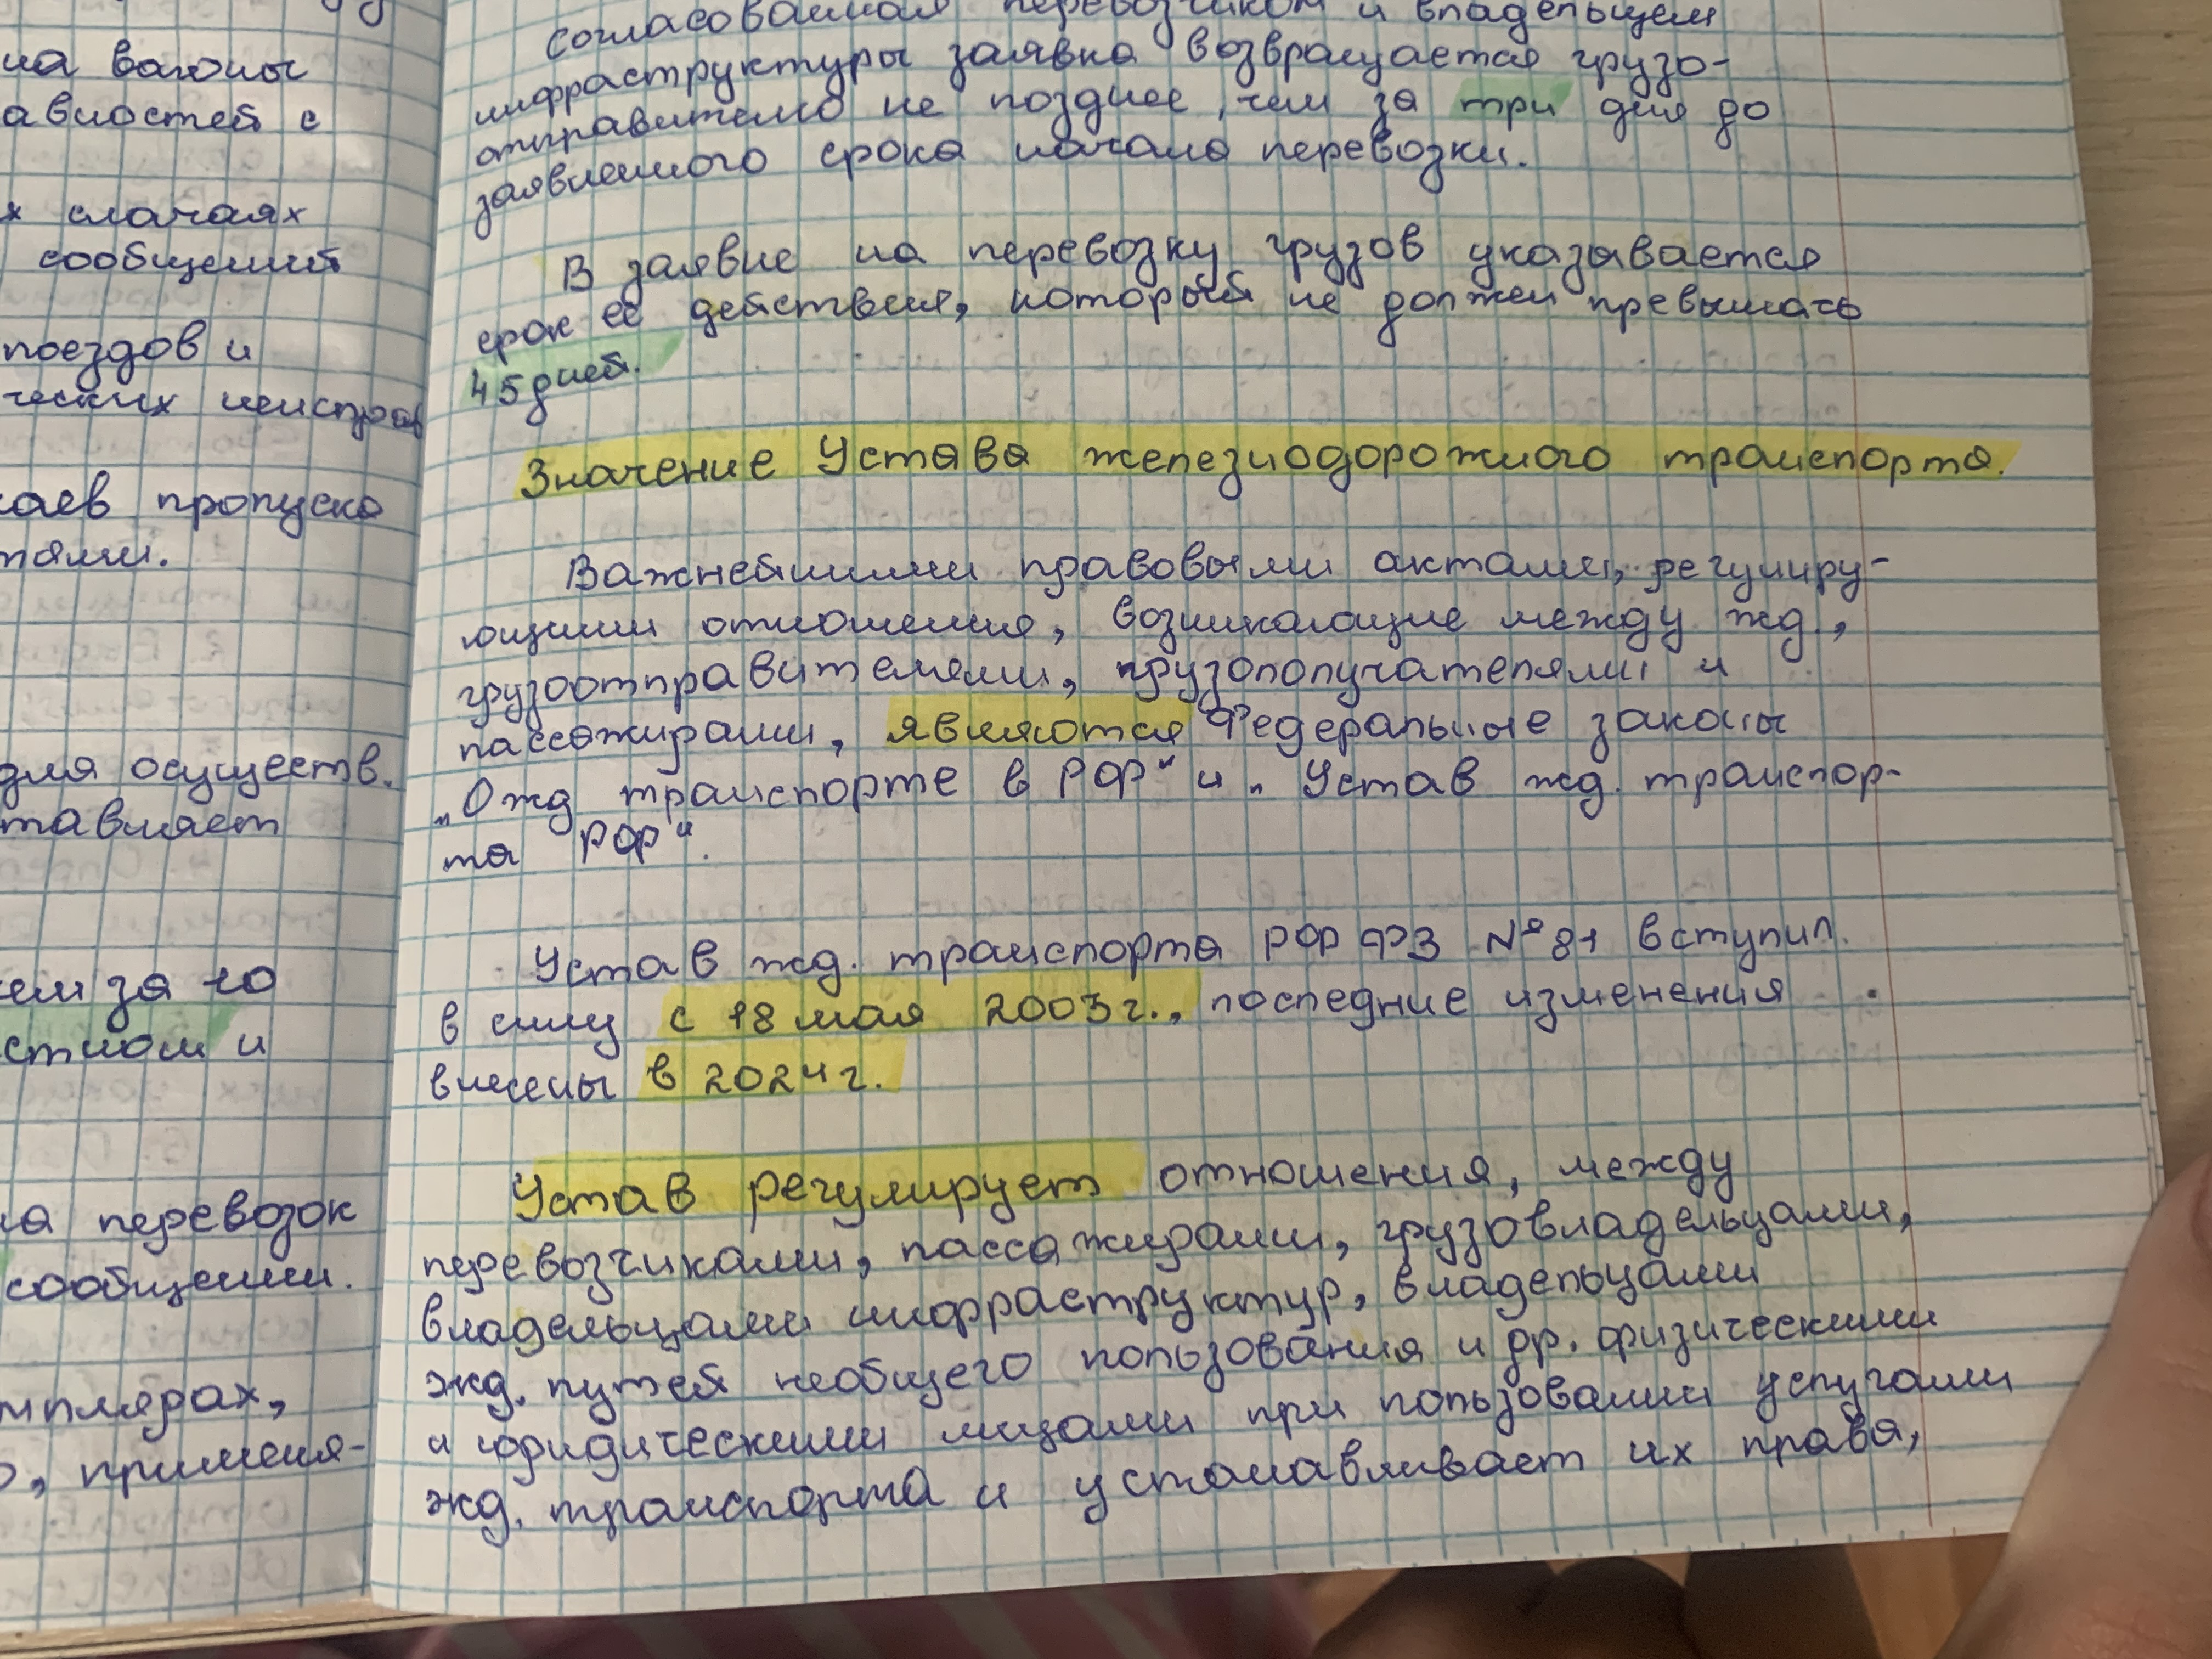 на вагоны
авностей с
х случаях
сообщений
поездов и
ческих неисправ
чаев пропуска
тями.
для осуществ.
тавляет
ем за 10
стном и
на перевозок
сообщении.
мплярах,
о, применя-
согласованная перевозчиком и владельцем
инфраструктуры заявка возвращается грузо-
отправителю не позднее, чем за три дня до
заявленного срока начала перевозки.
В заявке на перевозку грузов указывается
срок её действия, который не должен превышать
45 дней.
Значение Устава железнодорожного транспорта.
Важнейшими правовыми актами, регулиру-
ющими отношения, возникающие между жд.,
грузоотправителями, грузополучателями и
пассажирами, являются Федеральные законы
„О жд транспорте в РФ" и „Устав жд. транспор-
та РФ".
Устав жд. транспорта РФ ФЗ №81 вступил
в силу с 18 мая 2003г., последние изменения
внесены в 2024г.
Устав регулирует отношения, между
перевозчиками, пассажирами, грузовладельцами,
владельцами инфраструктур, владельцами
жд. путей необщего пользования и др. физическими
и юридическими лицами при пользовании услугами
жд. транспорта и устанавливает их права,